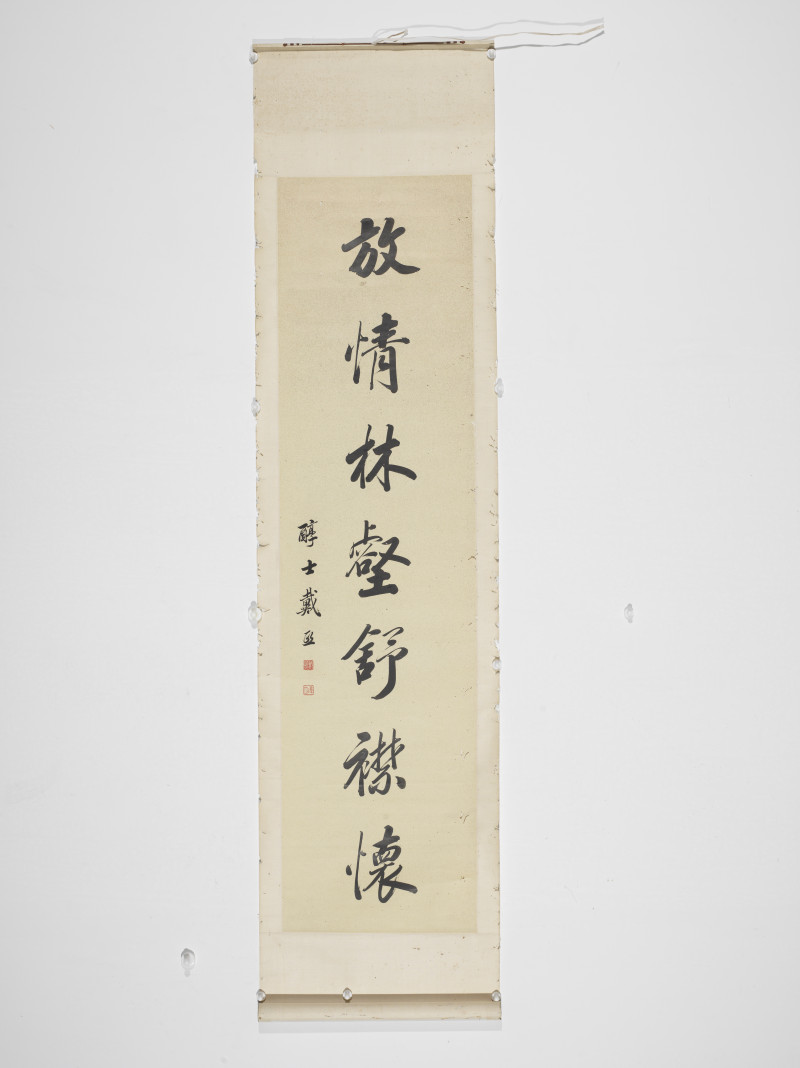 放情林壑舒襟懷
醇士戴熙